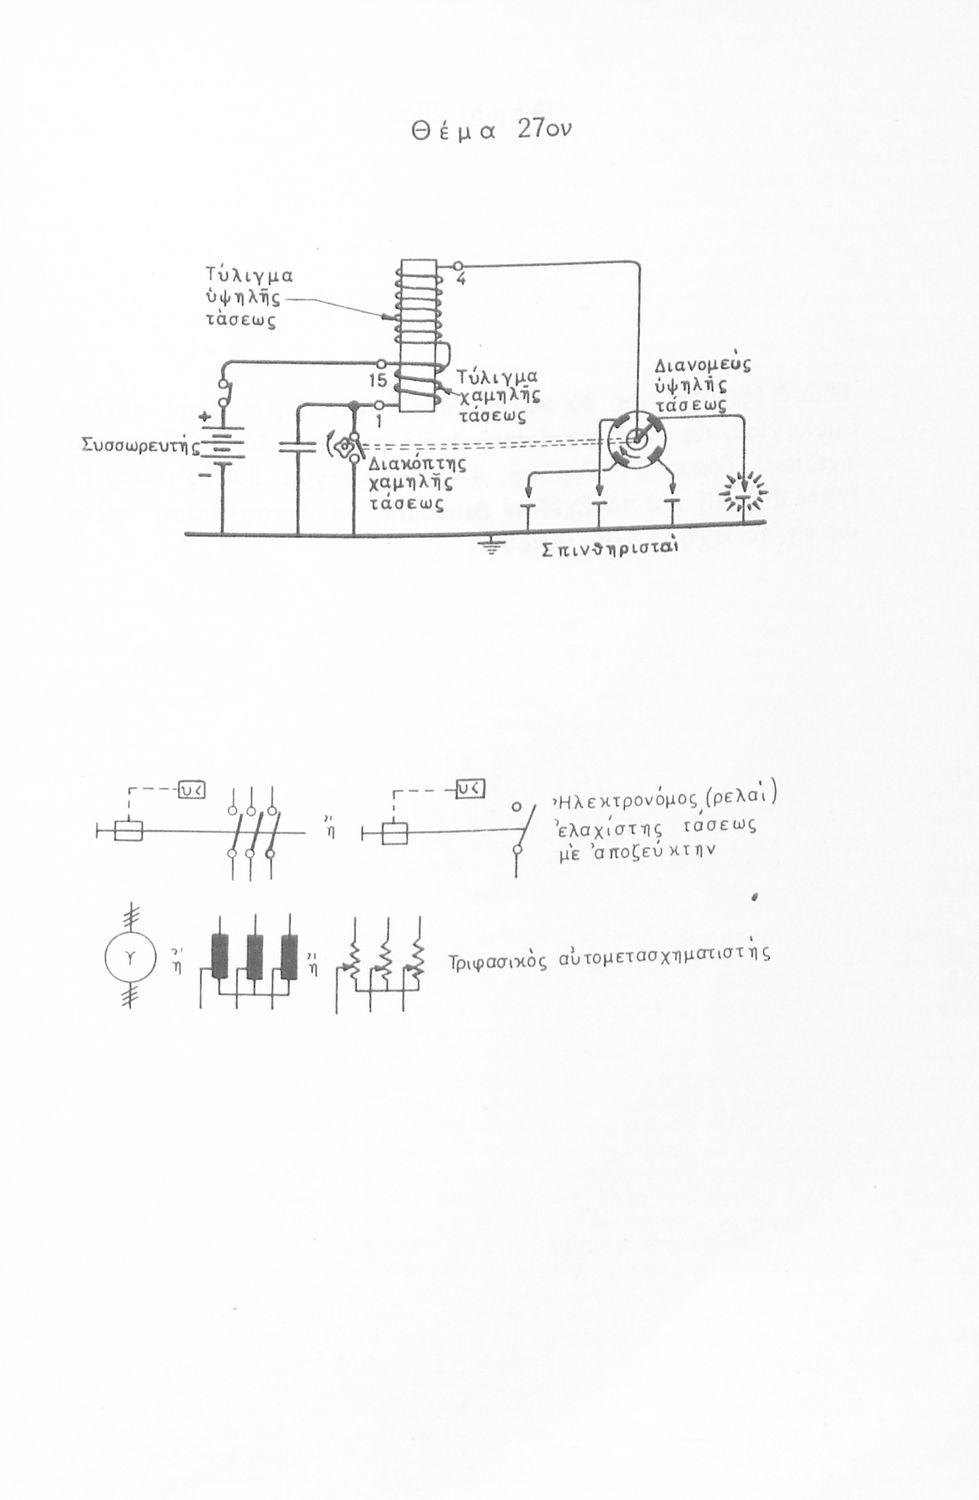 Θέμα 27ον
Τύλιγμα
ὑψηλῆς
τάσεως
4
15
1
Τύλιγμα
χαμηλῆς
τάσεως
Διανομεὺς
ὑψηλῆς
τάσεως
+
Συσσωρευτής
−
Διακόπτης
χαμηλῆς
τάσεως
Σπινθηρισταὶ
U<
ἢ
U<
Ἠλεκτρονόμος (ρελαὶ)
ἐλαχίστης τάσεως
μὲ ἀποζεύκτην
Y
ἢ
ἢ
Τριφασικὸς αὐτομετασχηματιστὴς